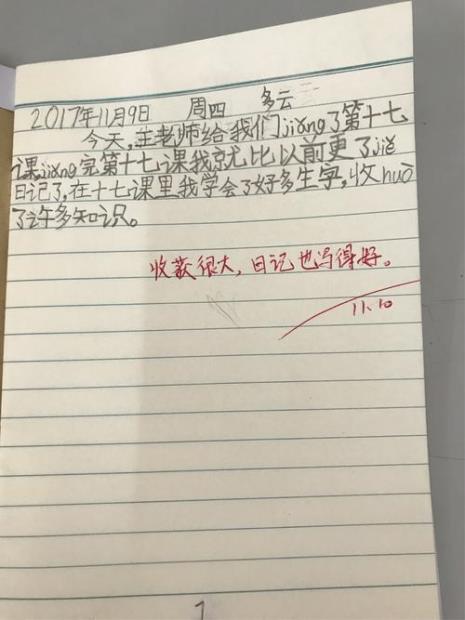 2017年11月9日 周四 多云
今天,王老师给我们jiǎng了第十七
课jiǎng完第十七课我就比以前更了jiě
日记了,在十七课里我学会了好多生字,收huò
了许多知识。
收获很大,日记也写得好。
11.10
7